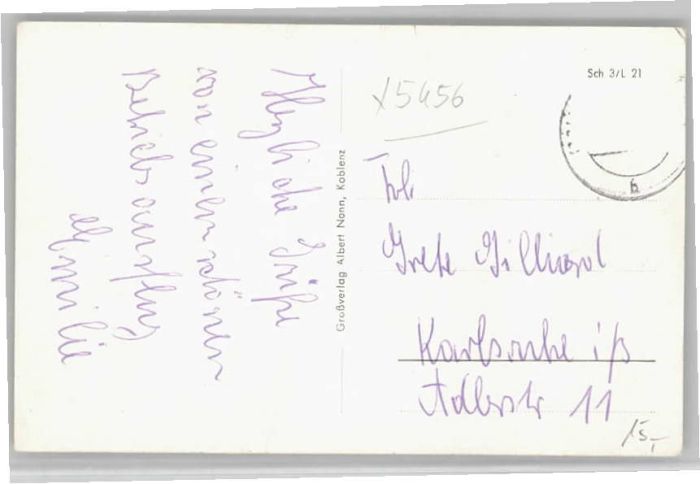 Herzliche Grüße
von einem schönen
Betriebsausflug
Emilie
Großverlag Albert Nann, Koblenz
x5456
Sch 3/L 21
b
Frl.
Grete Gilliard
Karlsruhe i/B
Adlerstr 11
15,-